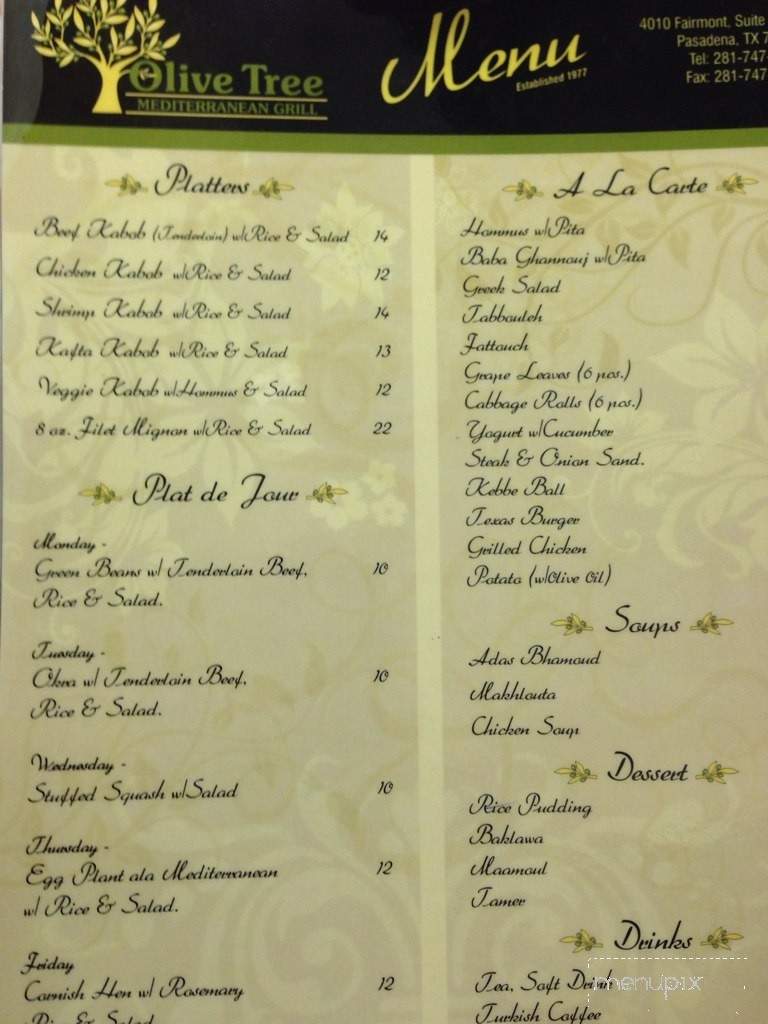 Olive Tree
MEDITERRANEAN GRILL
Menu
Established 1977
4010 Fairmont, Suite
Pasadena, TX 7
Tel: 281-747-
Fax: 281-747-
Platters
Beef Kabob (Tenderloin) w/Rice & Salad 14
Chicken Kabob w/Rice & Salad 12
Shrimp Kabob w/Rice & Salad 14
Kafta Kabob w/Rice & Salad 13
Veggie Kabob w/Hommus & Salad 12
8 oz. Filet Mignon w/Rice & Salad 22
Plat de Jour
Monday -
Green Beans w/ Tenderloin Beef, 10
Rice & Salad.
Tuesday -
Okra w/ Tenderloin Beef, 10
Rice & Salad.
Wednesday -
Stuffed Squash w/Salad 10
Thursday -
Egg Plant ala Mediterranean 12
w/ Rice & Salad.
Friday
Cornish Hen w/ Rosemary 12
Rice & Salad
A La Carte
Hommus w/Pita
Baba Ghannouj w/Pita
Greek Salad
Tabbouleh
Fattouch
Grape Leaves (6 pcs.)
Cabbage Rolls (6 pcs.)
Yogurt w/Cucumber
Steak & Onion Sand.
Kebbe Ball
Texas Burger
Grilled Chicken
Potato (w/Olive Oil)
Soups
Adas Bhamoud
Makhlouta
Chicken Soup
Dessert
Rice Pudding
Baklawa
Maamoul
Tamer
Drinks
Tea, Soft Drink
Turkish Coffee
menupix